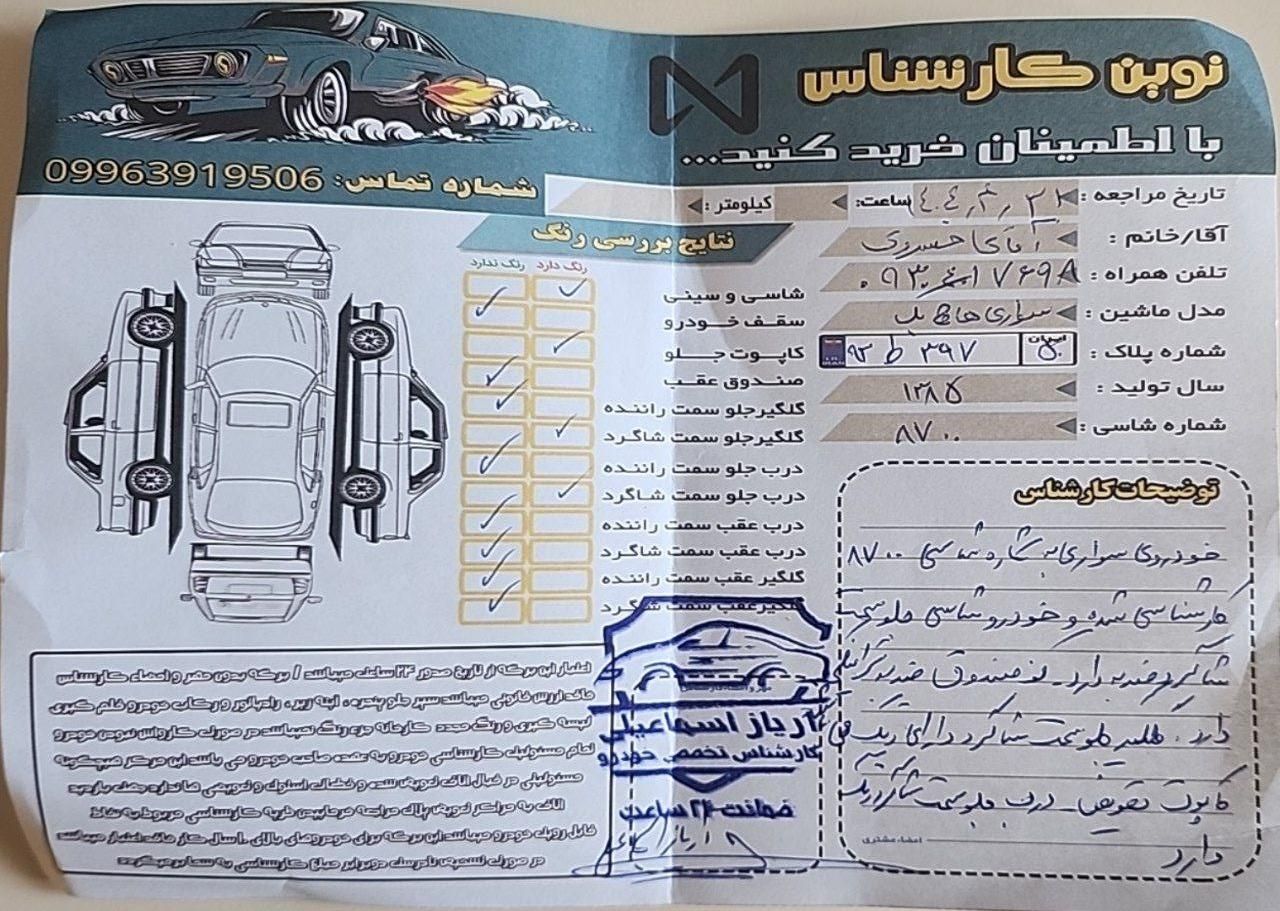 نوین کارشناس
با اطمینان خرید کنید...
شماره تماس: 09963919506
تاریخ مراجعه :
ساعت:
کیلومتر :
آقا/خانم : آقای خسروی
تلفن همراه :
مدل ماشین : سواری هاچ بک
شماره پلاک : ایران ۹۳ ط ۳۹۷
سال تولید : ۱۳۸۵
شماره شاسی : ۸۷۰۰
نتایج بررسی رنگ
رنگ دارد رنگ ندارد
شاسی و سینی
سقف خودرو
کاپوت جلو
صندوق عقب
گلگیر جلو سمت راننده
گلگیر جلو سمت شاگرد
درب جلو سمت راننده
درب جلو سمت شاگرد
درب عقب سمت راننده
درب عقب سمت شاگرد
گلگیر عقب سمت راننده
گلگیر عقب سمت شاگرد
توضیحات کارشناس
خودروی سواری به شماره شاسی ۸۷۰۰
کارشناسی شده و خودرو شاسی جلو سمت
شاگرد ضربه دارد - کف صندوق ضربه
دارد. گلگیر جلو سمت شاگرد دارای رنگ
کاپوت تعویض - درب جلو سمت شاگرد رنگ
دارد
امضاء مشتری
مهر و امضاء کارشناس
آریاز اسماعیلی
کارشناس تخصصی خودرو
ضمانت ۲۴ ساعت
اعتبار این برگه از تاریخ صدور ۲۴ ساعت میباشد / برگه بدون مهر و امضاء کارشناس
فاقد ارزش قانونی میباشد سپر جلو پنجره ، آینه زیر ، رادیاتور و رکاب خودرو قلم گیری
لیسه گیری و رنگ مجدد کارخانه جزء رنگ نمیباشد در صورت کارواش نبودن خودرو
تمام مسئولیت کارشناسی خودرو به عهده صاحب خودرو می باشد این مرکز هیچگونه
مسئولیتی در قبال اتاق تعویض شده و قطعات استوک و تعویضی ها ندارد جهت بازدید
اتاق به مراکز تعویض پلاک مراجعه فرمایین
قابل رویت خودرو میباشد این برگه برای خودروهای بالای ۱۰ سال کار فاقد اعتبار میباشد
در صورت تشخیص نادرست دوبرابر مبلغ کارشناسی به شما برمیگردد